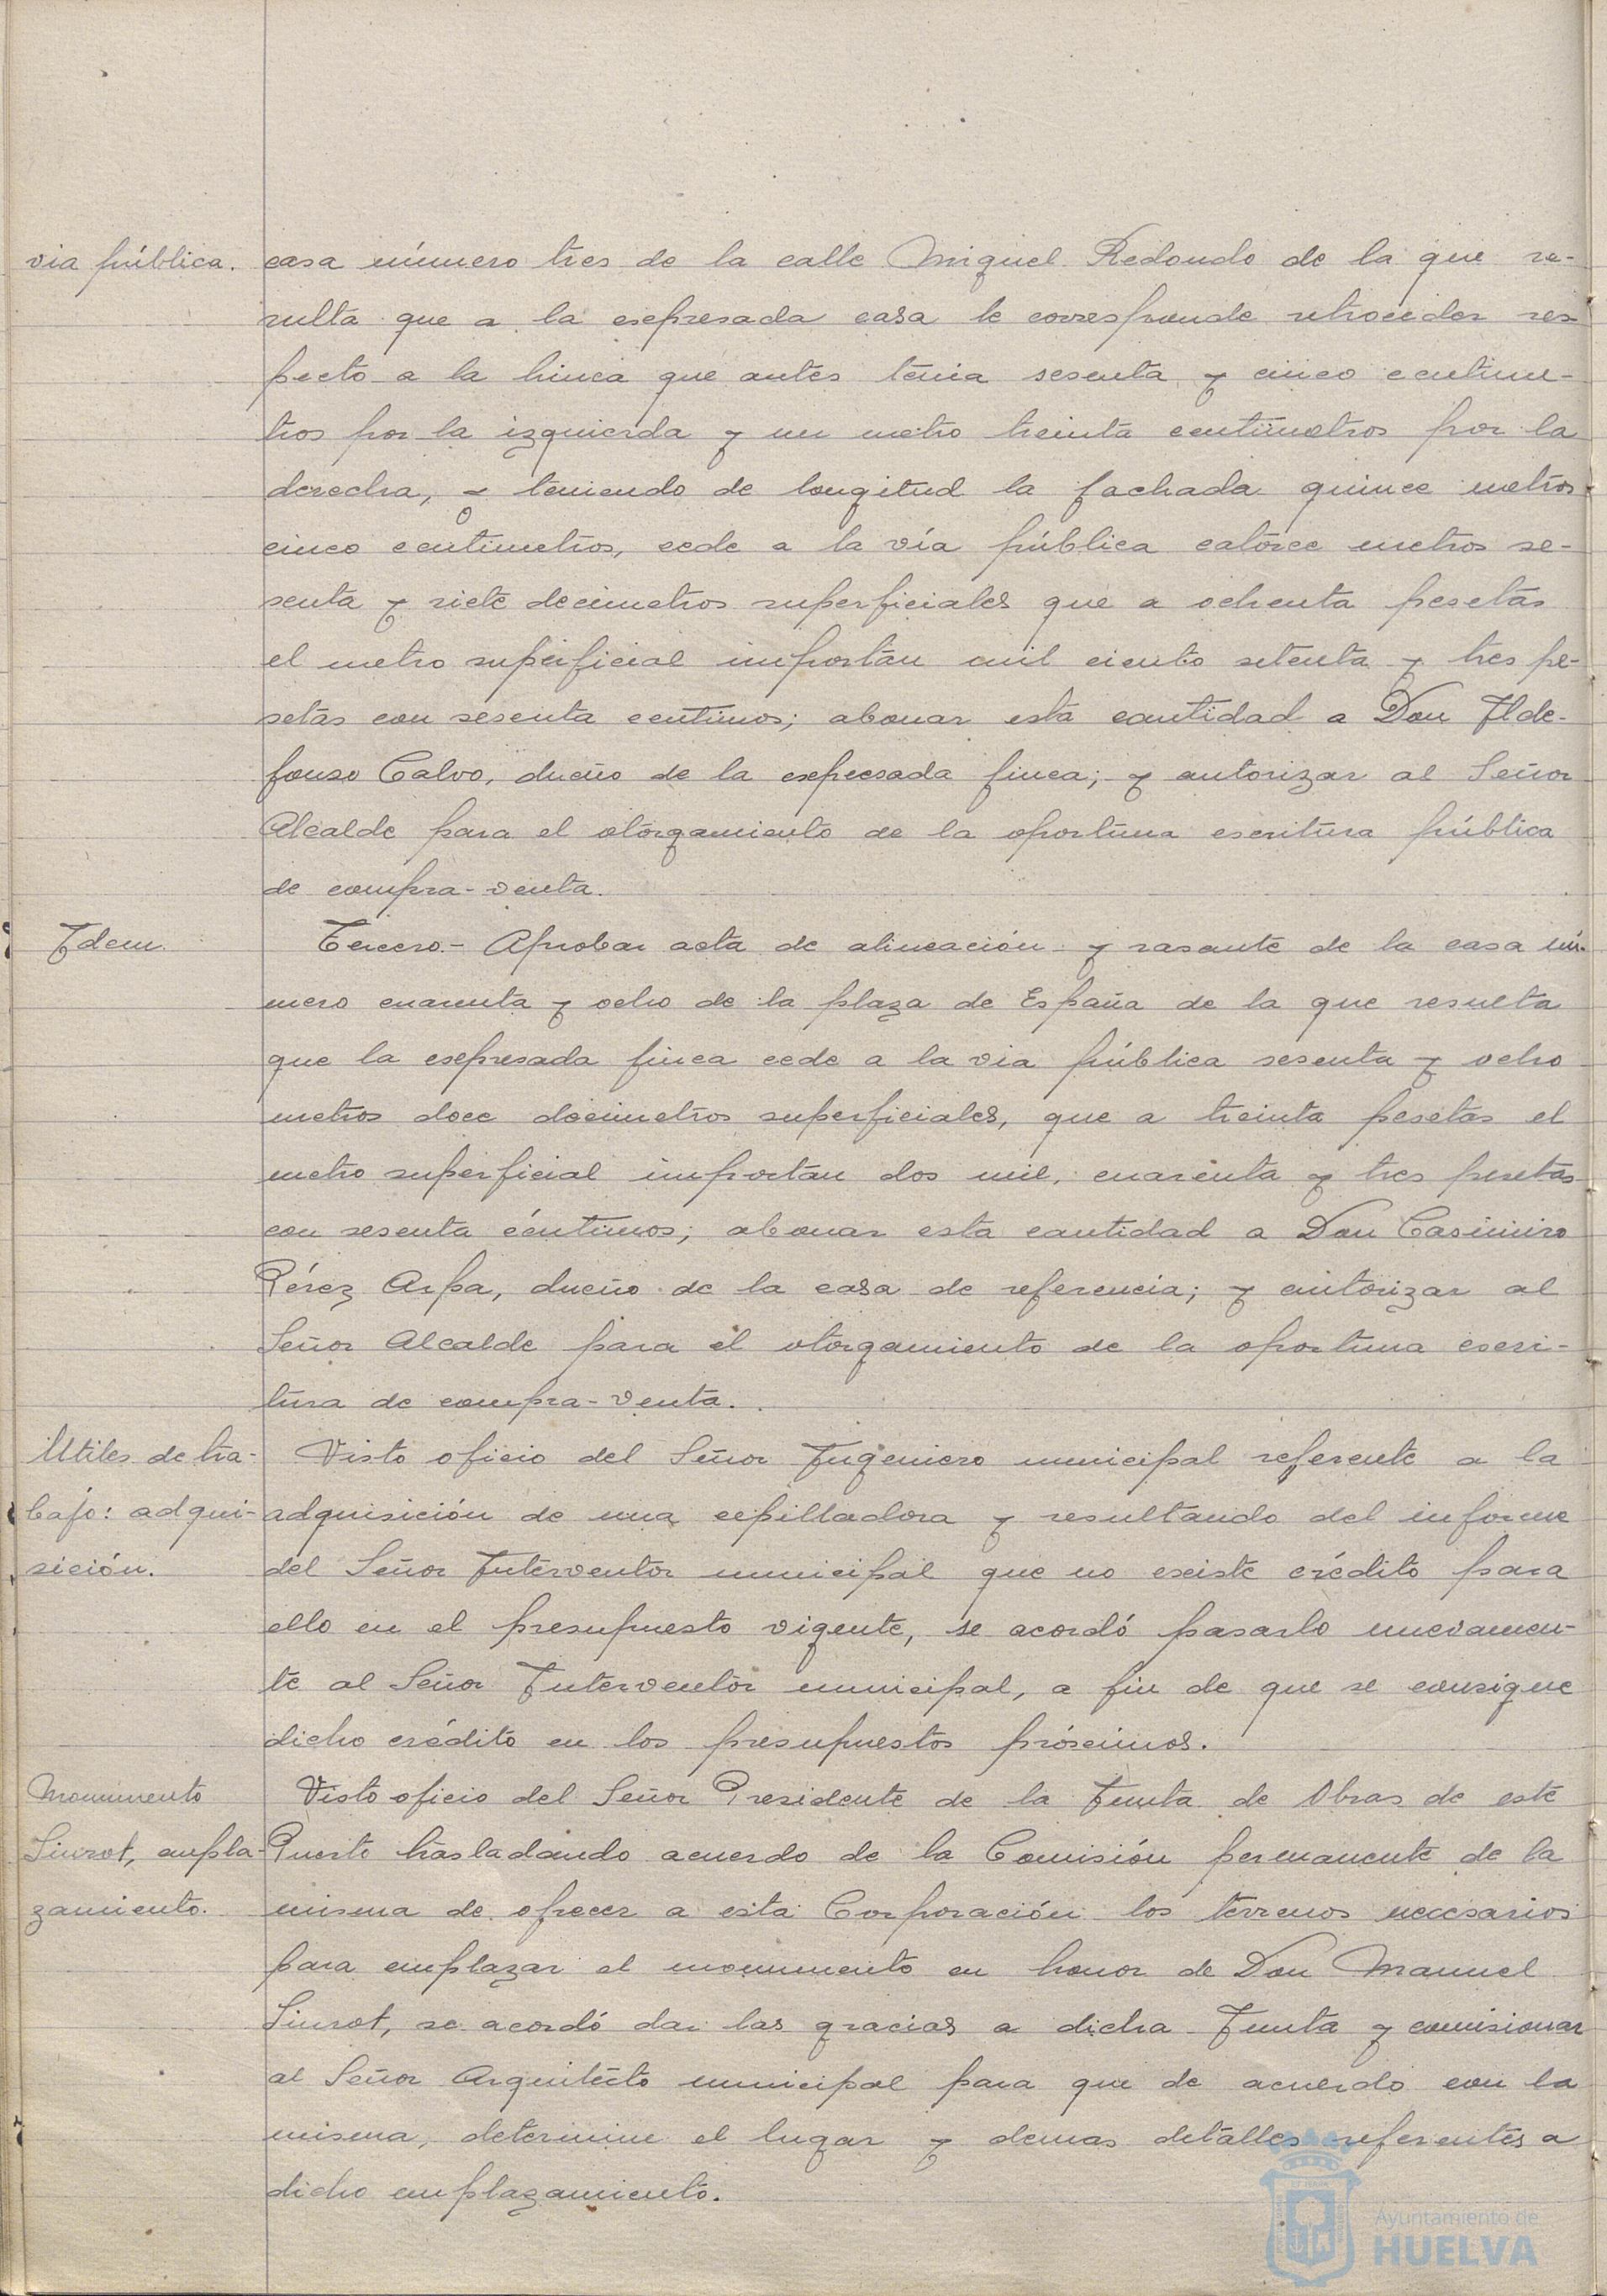 via pública. casa número tres de la calle Miguel Redondo de la que re-
sulta que a la expresada casa le corresponde retroceder res-
pecto a la linea que antes tenia sesenta y cinco centime-
tros por la izquierda y un metro treinta centimetros por la
derecha, y teniendo de longitud la fachada quince metros
cinco centimetros, cede a la vía pública catorce metros se-
senta y siete decimetros superficiales que a ochenta pesetas
el metro superficial importan mil ciento setenta y tres pe-
setas con sesenta centimos; abonar esta cantidad a Don Ilde-
fonso Calvo, dueño de la expresada finca; y autorizar al Señor
Alcalde para el otorgamiento de la oportuna escritura pública
de compra-venta.
Idem. Tercero.- Aprobar acta de alineación y rasante de la casa nú-
mero cuarenta y ocho de la plaza de España de la que resulta
que la expresada finca cede a la via pública sesenta y ocho
metros doce decimetros superficiales, que a treinta pesetas el
metro superficial importan dos mil, cuarenta y tres pesetas
con sesenta céntimos; abonar esta cantidad a Don Casimiro
Pérez Arpa, dueño de la casa de referencia; y autorizar al
Señor Alcalde para el otorgamiento de la oportuna escri-
tura de compra-venta.
Utiles de tra- Visto oficio del Señor Ingeniero municipal referente a la
bajo: adqui- adquisición de una cepilladora y resultando del informe
sición. del Señor Interventor municipal que no existe crédito para
ello en el presupuesto vigente, se acordó pasarlo nuevamen-
te al Señor Interventor municipal, a fin de que se consigne
dicho crédito en los presupuestos próximos.
Monumento Visto oficio del Señor Presidente de la Junta de Obras de este
Siurot, empla- Puerto trasladando acuerdo de la Comisión permanente de la
zamiento. misma de ofrecer a esta Corporación los terrenos necesarios
para emplazar el monumento en honor de Don Manuel
Siurot, se acordó dar las gracias a dicha Junta y comisionar
al Señor Arquitecto municipal para que de acuerdo con la
misma, determine el lugar y demas detalles referentes a
dicho emplazamiento.
Ayuntamiento de
HUELVA